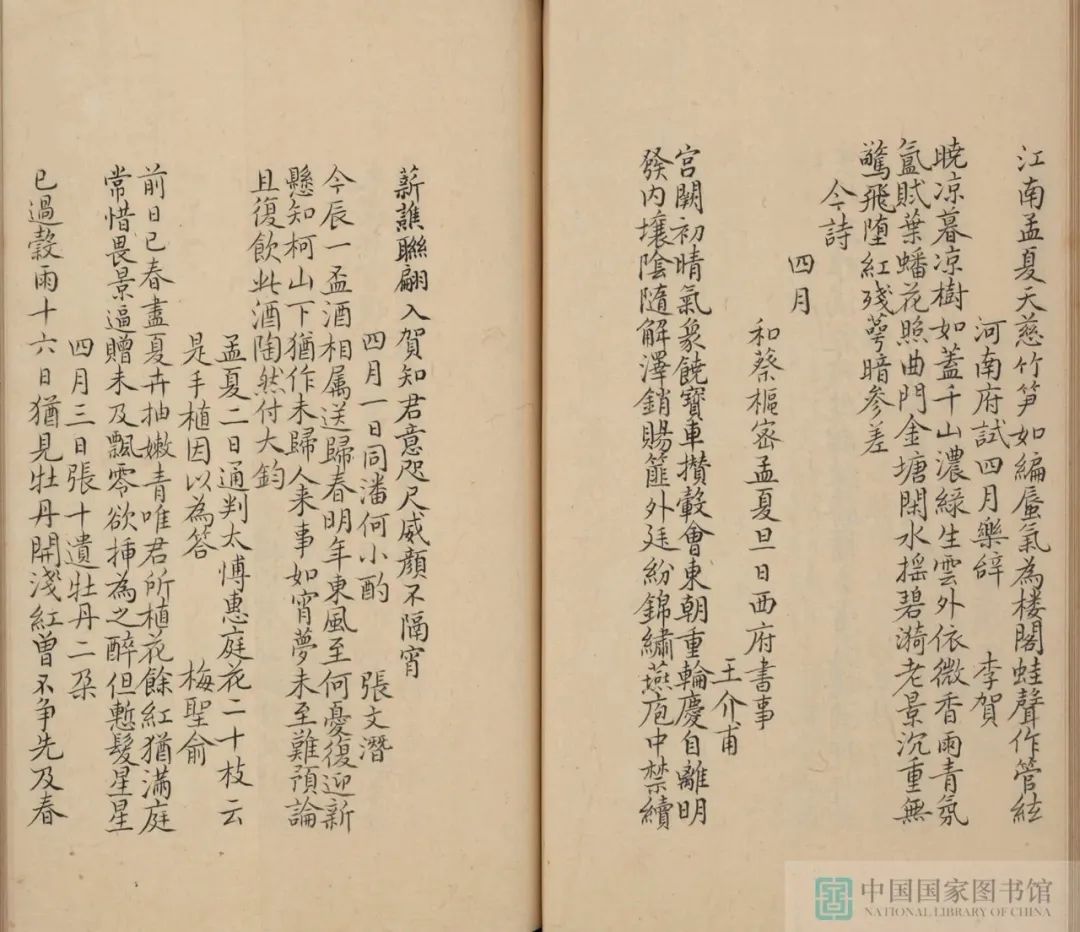 江南孟夏天慈竹笋如編蜃氣為楼閣蛙聲作管絃
河南府試四月樂辞 李賀
暁凉暮凉樹如蓋千山濃綠生雲外依微香雨青氛
氳賦葉蟠花照曲門金塘閑水摇碧漪老景沉重無
驚飛堕紅残萼暗参差
今詩
四月
和蔡樞密孟夏旦日西府書事
王介甫
宫闕初晴氣象饒寶車攅轂會東朝重輪慶自離明
發内壤陰隨解澤銷賜篚外廷紛錦繡燕庖中禁續
薪譙聯翩入賀知君意咫尺威顔不隔宵
四月一日同潘何小酌 張文潛
今辰一盃酒相属送歸春明年東風至何憂復迎新
懸知柯山下猶作未歸人来事如宵夢未至難預論
且復飲此酒陶然付大鈞
孟夏二日通判太博惠庭花二十枝云
是手植因以為答 梅聖俞
前日已春盡夏卉抽嫩青唯君所植花餘紅猶滿庭
常惜畏景逼贈未及飄零欲挿為之醉但慙髮星星
四月三日張十遺牡丹二朶
已過穀雨十六日猶見牡丹開淺紅曽不争先及春
中国国家图书馆
NATIONAL LIBRARY OF CHINA